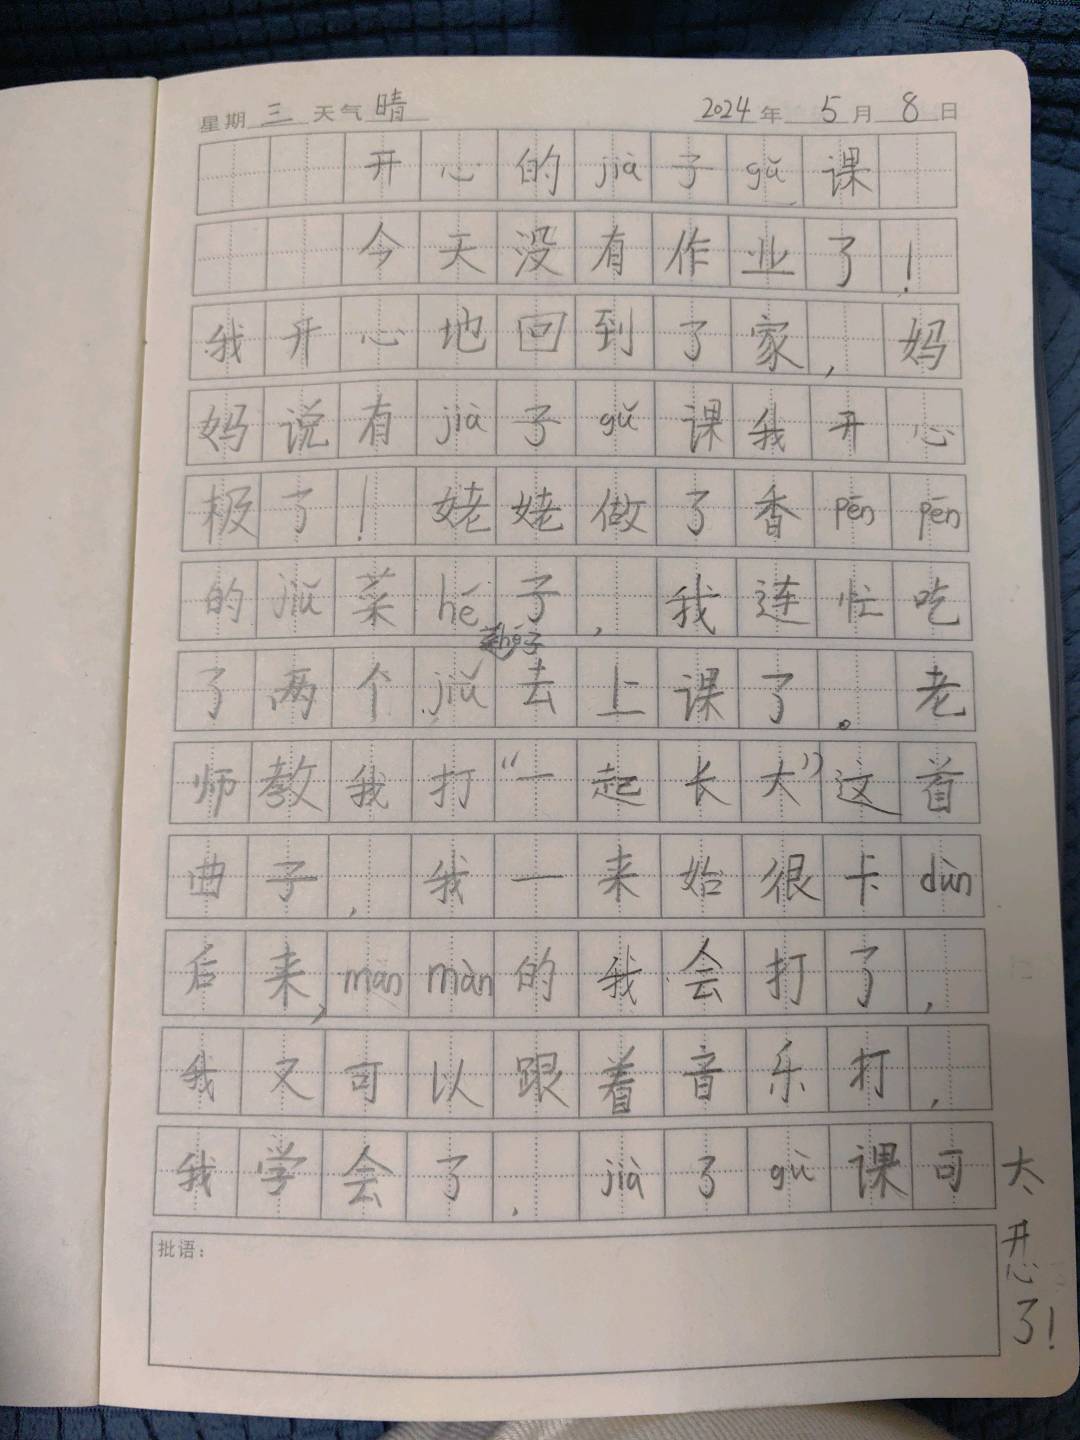 星期 三 天气 晴 2024 年 5 月 8 日
开心的jià子gǔ课
今天没有作业了！
我开心地回到了家，妈
妈说有jià子gǔ课我开心
极了！姥姥做了香pēnpēn
的jiǔ菜hé子，我连忙吃
菜hé子
了两个jiǔ去上课了。老
师教我打“一起长大”这首
曲子，我一来始很卡dùn
后来，mànmàn的我会打了，
我又可以跟着音乐打，
我学会了，jià了gǔ课可
太开心了！
批语：